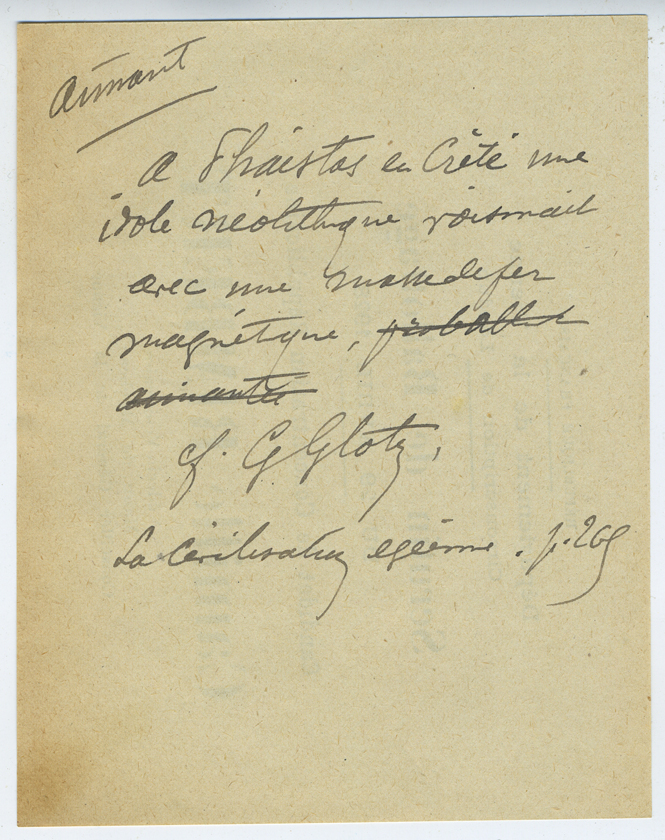 Aimant
A Phaistos en Crète une
idole néolithique voisinait
avec une masse de fer
magnétique, probablmt
aimantée
cf. G Glotz,
La Civilisation egéenne . p. 269